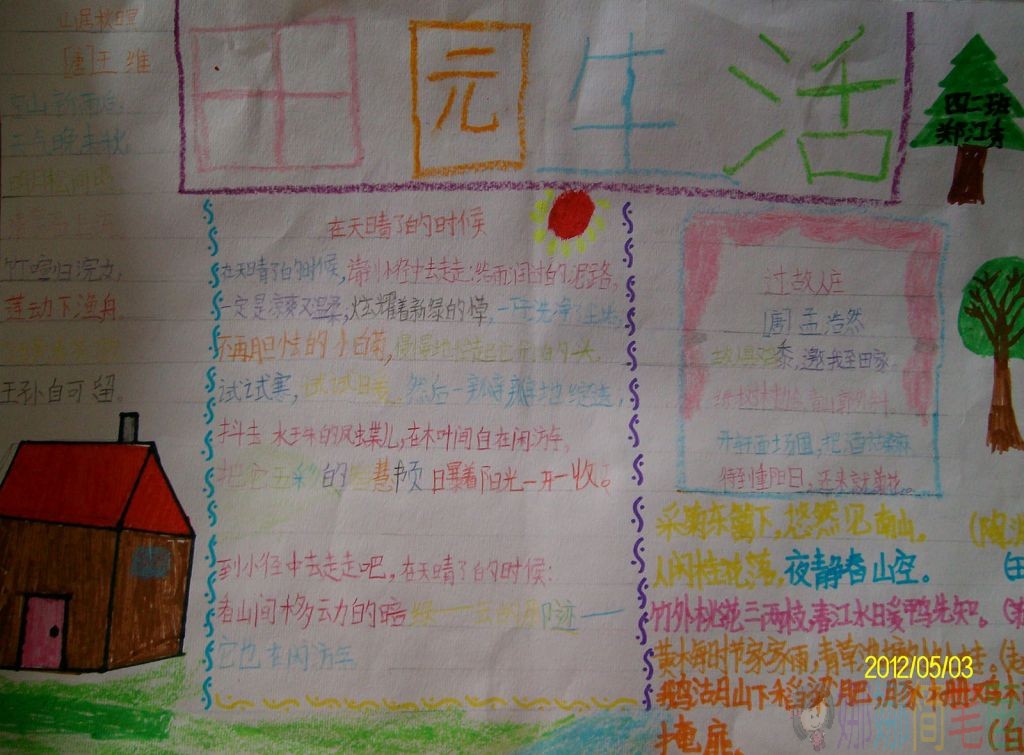 田园生活
四二班
郑江青
山居秋暝
[唐]王维
空山新雨后,
天气晚来秋,
竹喧归浣女,
莲动下渔舟。
王孙自可留。
在天晴了的时候
在天晴了的时候,请到小径中去走走:给雨润过的泥路,
一定是凉爽又温柔,炫耀着新绿的
不再胆怯的小白菊,慢慢地抬起它们的头,
试试寒,试试暖,然后一瓣瓣地绽透,
抖去水珠的凤蝶儿,在木叶间自在闲游,
把它五彩的智慧 曝着阳光一开一收。
到小径中去走走吧,在天晴了的时候:
看山间移动的暗绿——云的印迹——
它也在闲游
过故人庄
[唐]孟浩然
故人具鸡黍,邀我至田家。
开轩面场圃,把酒话桑麻
待到重阳日,还来就菊花。
采菊东篱下,悠然见南山。(陶
人闲桂花落,夜静春山空。
竹外桃花三两枝,春江水暖鸭先知。
黄梅时节家家雨,青草
鹅湖山下稻粱肥,豚栅鸡
掩扉。
2012/05/03